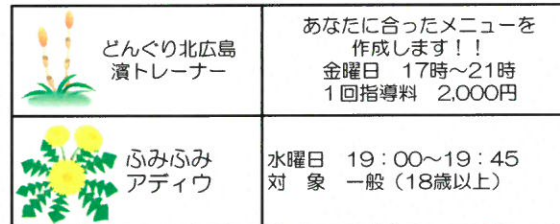 どんぐり北広島
濱トレーナー
あなたに合ったメニューを
作成します！！
金曜日　17時～21時
１回指導料　2,000円
ふみふみ
アディウ
水曜日　19：00～19：45
対　象　一般（18歳以上）